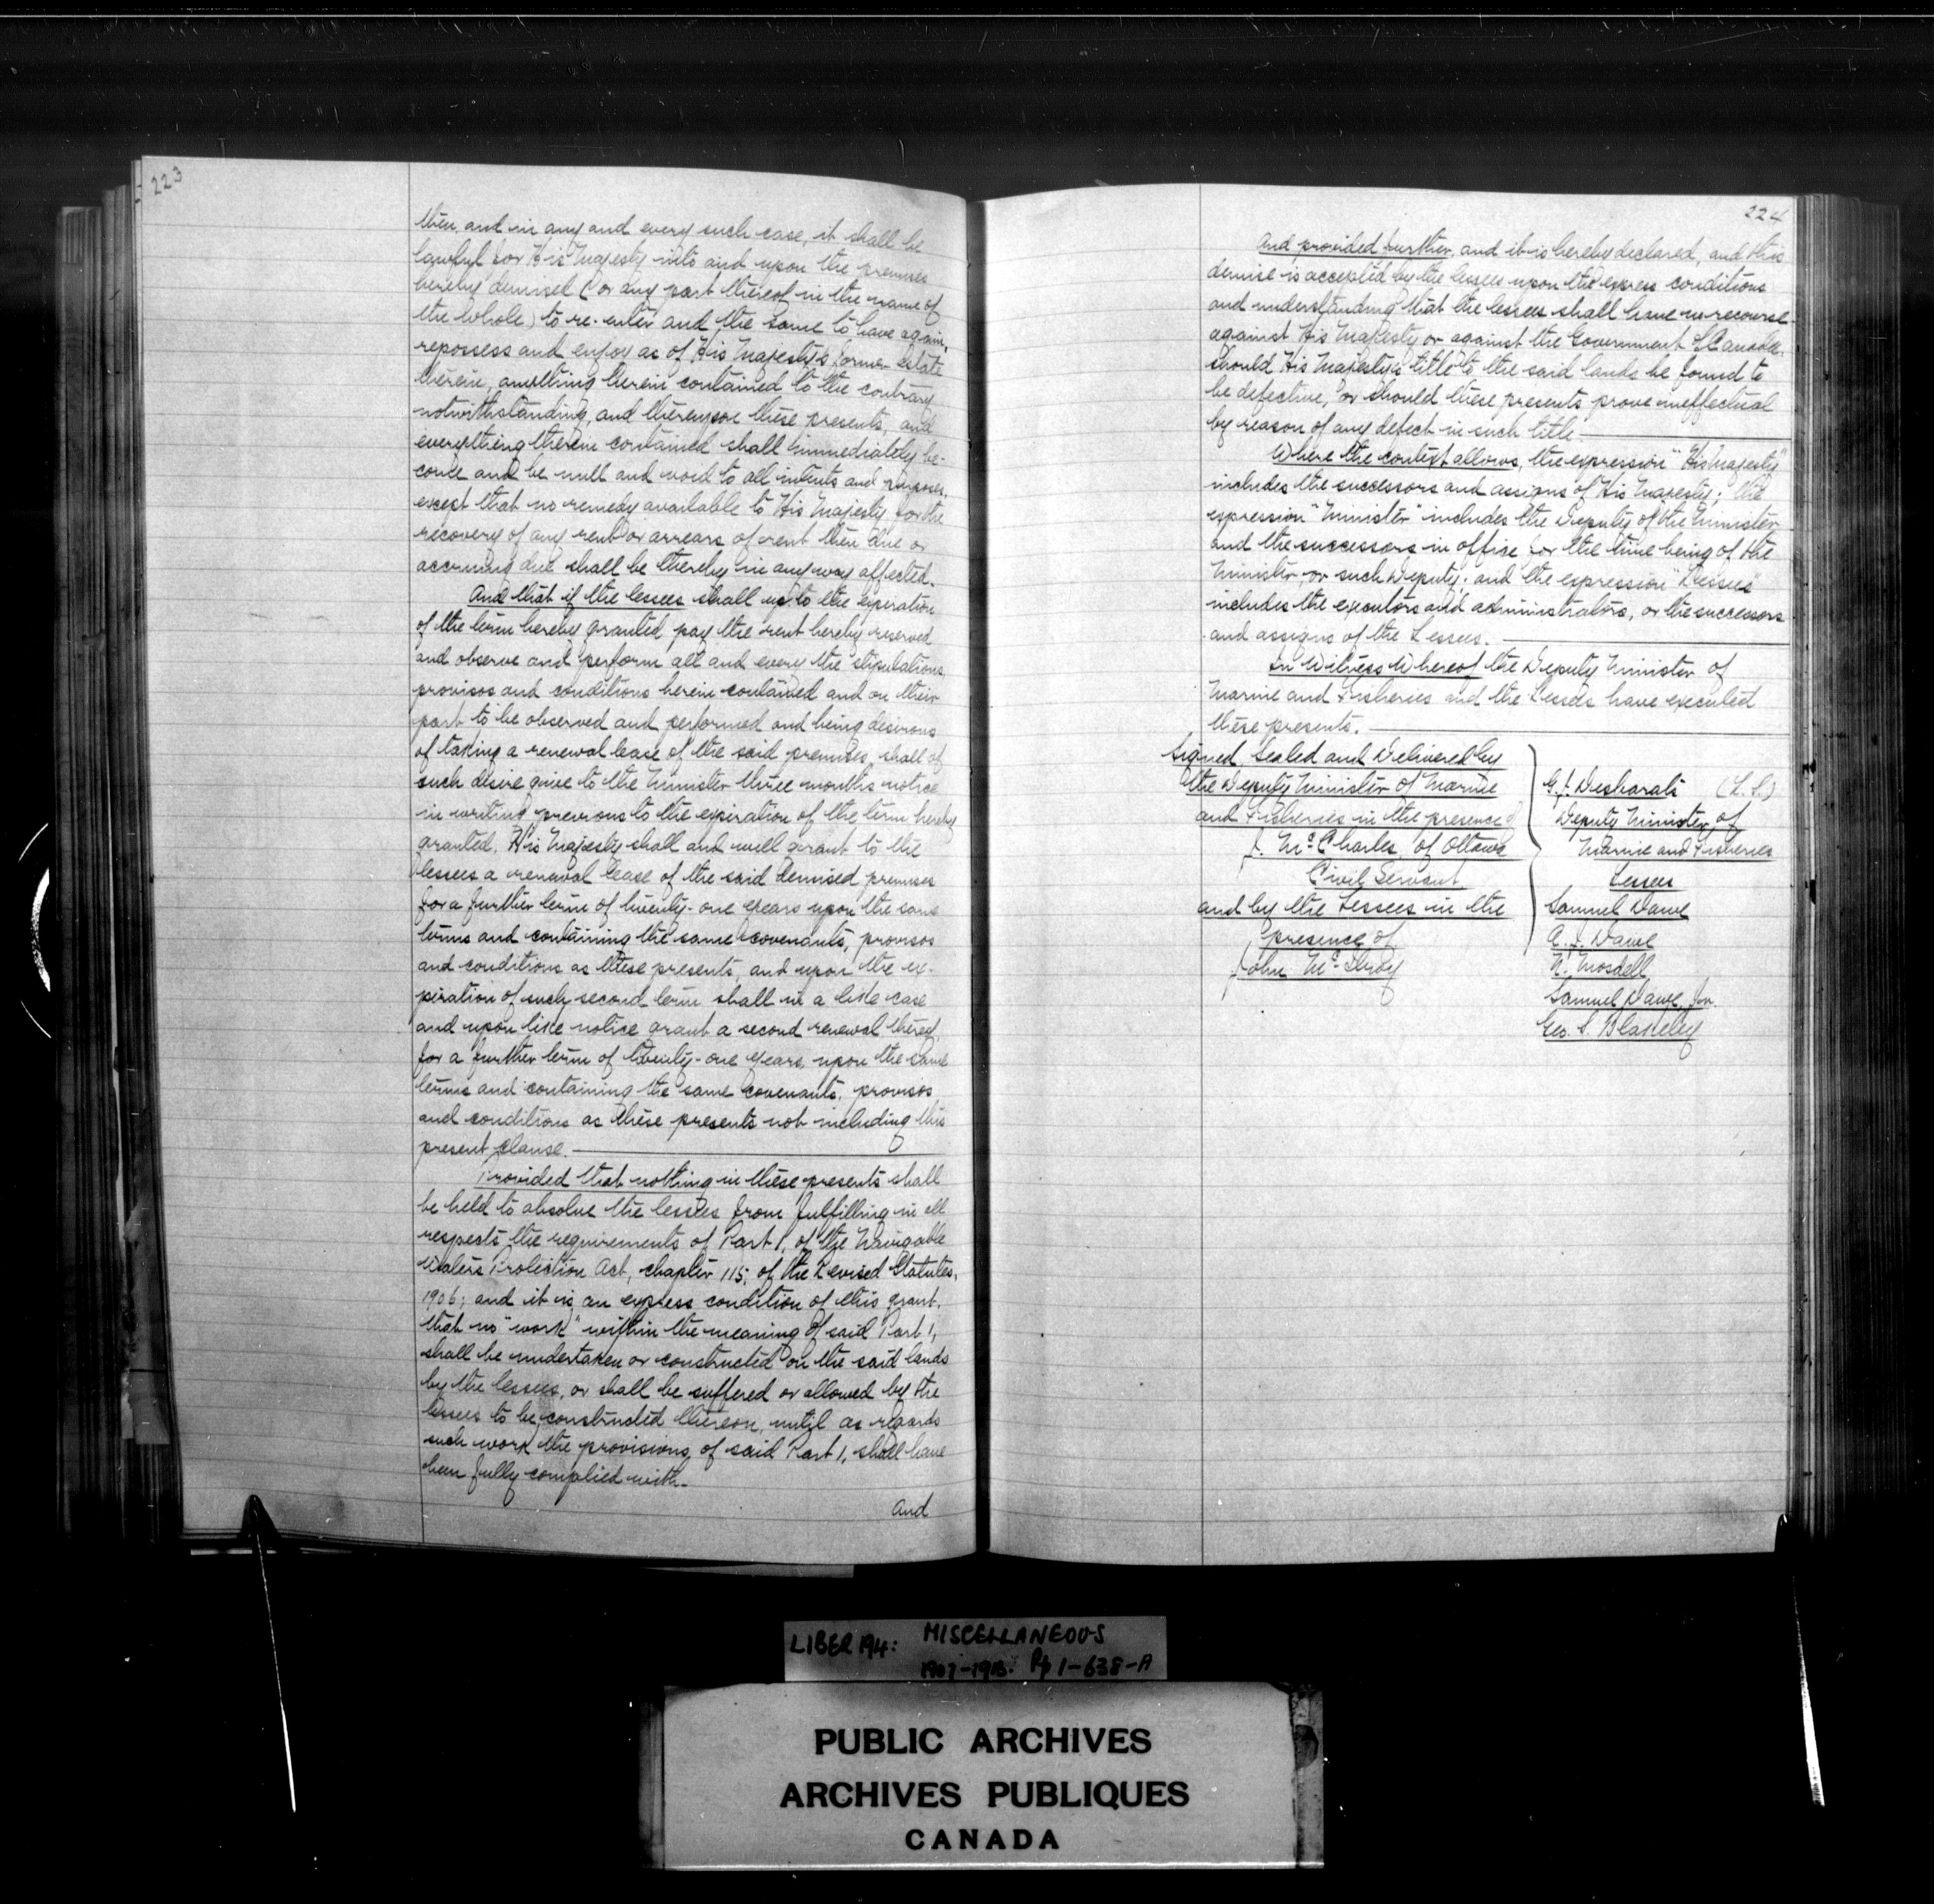 223
then, and in any and every such case, it shall be
lawful for His Majesty into and upon the premises
hereby demised (or any part thereof in the name of
the whole) to re-enter and the same to have again,
repossess and enjoy as of His Majesty's former estate
therein, anything herein contained to the contrary
notwithstanding, and thereupon these presents, and
everything therein contained shall immediately be-
come and be null and void to all intents and purposes,
except that no remedy available to His Majesty for the
recovery of any rent or arrears of rent then due or
accruing due shall be thereby in any way affected.
And that if the lessees shall up to the expiration
of the term hereby granted pay the rent hereby reserved
and observe and perform all and every the stipulations,
provisos and conditions herein contained and on their
part to be observed and performed and being desirous
of taking a renewal lease of the said premises, shall of
such desire give to the Minister three months notice
in writing previous to the expiration of the term hereby
granted. His Majesty shall and will grant to the
lessees a renewal lease of the said demised premises
for a further term of twenty-one years upon the same
terms and containing the same covenants, provisos
and conditions as these presents, and upon the ex-
piration of such second term shall in a like case
and upon like notice grant a second renewal thereof,
for a further term of twenty-one years, upon the same
terms and containing the same covenants, provisos
and conditions as these presents not including this
present clause.
Provided that nothing in these presents shall
be held to absolve the lessees from fulfilling in all
respects the requirements of Part 1, of the Navigable
Waters Protection Act, chapter 115, of the Revised Statutes,
1906; and it is an express condition of this grant,
that no "work" within the meaning of said Part 1,
shall be undertaken or constructed on the said lands
by the lessees, or shall be suffered or allowed by the
lessees to be constructed thereon, until as regards
such work the provisions of said Part 1, shall have
been fully complied with.
And
224
And provided further, and it is hereby declared, and this
demise is accepted by the lessees upon the express conditions
and understanding that the lessees shall have no recourse
against His Majesty or against the Government of Canada,
should His Majesty's title to the said lands be found to
be defective, or should these presents prove ineffectual
by reason of any defect in such title
Where the context allows, the expression "His Majesty"
includes the successors and assigns of His Majesty; the
expression "Minister" includes the Deputy of the Minister
and the successors in office for the time being of the
Minister or such Deputy; and the expression "Lessees"
includes the executors and administrators, or the successors
and assigns of the Lessees.
In Witness Whereof the Deputy Minister of
Marine and Fisheries and the Lessees have executed
these presents.
Signed Sealed and Delivered by
the Deputy Minister of Marine
and Fisheries in the presence of
J. McCharles, of Ottawa
Civil Servant
and by the Lessees in the
presence of
John
G. J. Desbarats (L.S.)
Deputy Minister of
Marine and Fisheries
Lessees
Samuel Dawe
A. J. Dawe
N. Mosdell
Samuel Dawe Jnr.
Geo. S. Blakeley
LIBER 194: MISCELLANEOUS
1907-1913. Pp 1-638-A
PUBLIC ARCHIVES
ARCHIVES PUBLIQUES
CANADA